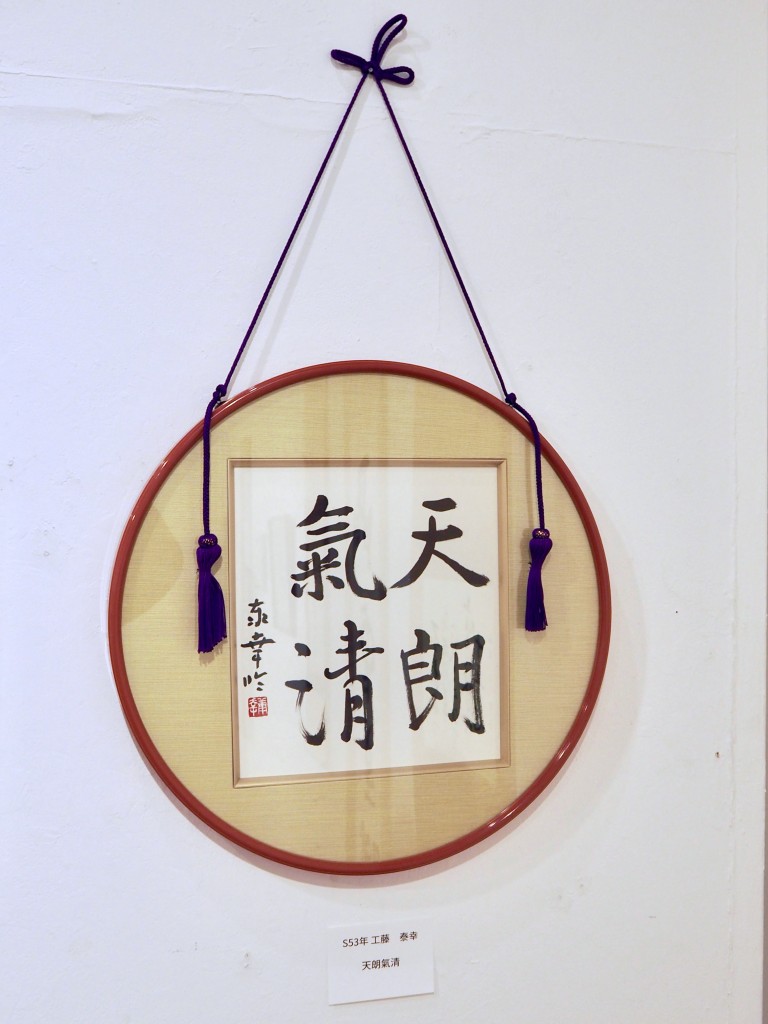 天朗
氣清
泰幸
S53年 工藤　泰幸
天朗氣清